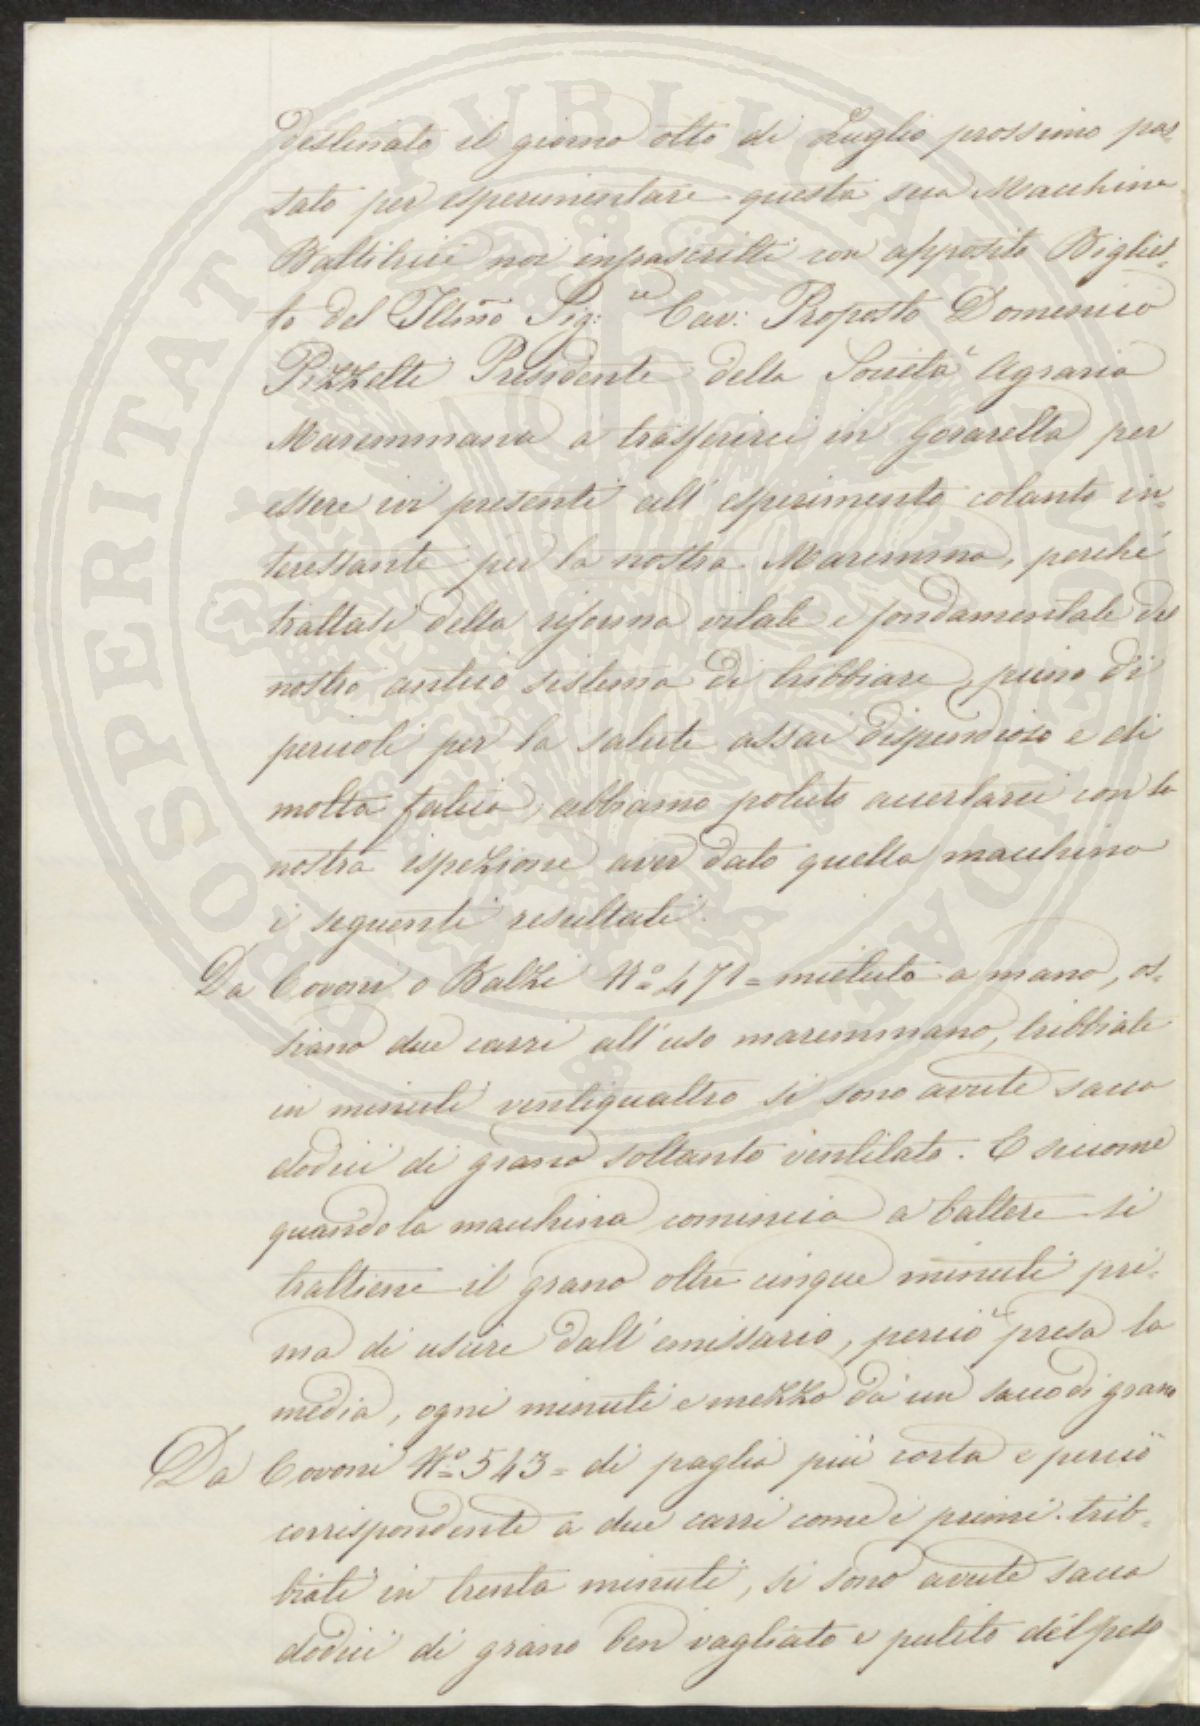 destinato il giorno otto di Luglio prossimo pas-
sato per esperimentare questa sua Macchina
Battitrice noi infrascritti con apposito Bigliet-
to del Illmo Sig:re Cav: Proposto Domenico
Pizzetti Presidente della Società Agraria
Maremmana a trasferirci in Gorarella per
essere ivi presenti all'esperimento cotanto in-
teressante per la nostra Maremma, perché
trattasi della riforma vitale e fondamentale del
nostro antico sistema di tribbiare, pieno di
pericoli per la salute assai dispendioso e di
molta fatica, abbiamo potuto accertarci con la
nostra ispezione aver dato quella macchina
i seguenti resultati.
Da Covoni o Balzi No 471= mietuto a mano, os-
siano due carri all'uso maremmano, tribbiate
in minuti ventiquattro si sono avute sacca
dodici di grano soltanto ventilato. E siccome
quando la macchina comincia a battere si
trattiene il grano oltre cinque minuti pri-
ma di uscire dall'emissario, perciò presa la
media, ogni minuti e mezzo dà un sacco di grano
Da Covoni No 543= di paglia più corta e perciò
corrispondente a due carri come i primi trib-
biati in trenta minuti, si sono avute sacca
dodici di grano ben vagliato e pulito del peso
PROSPERITATI PUBLICAE AUGENDAE